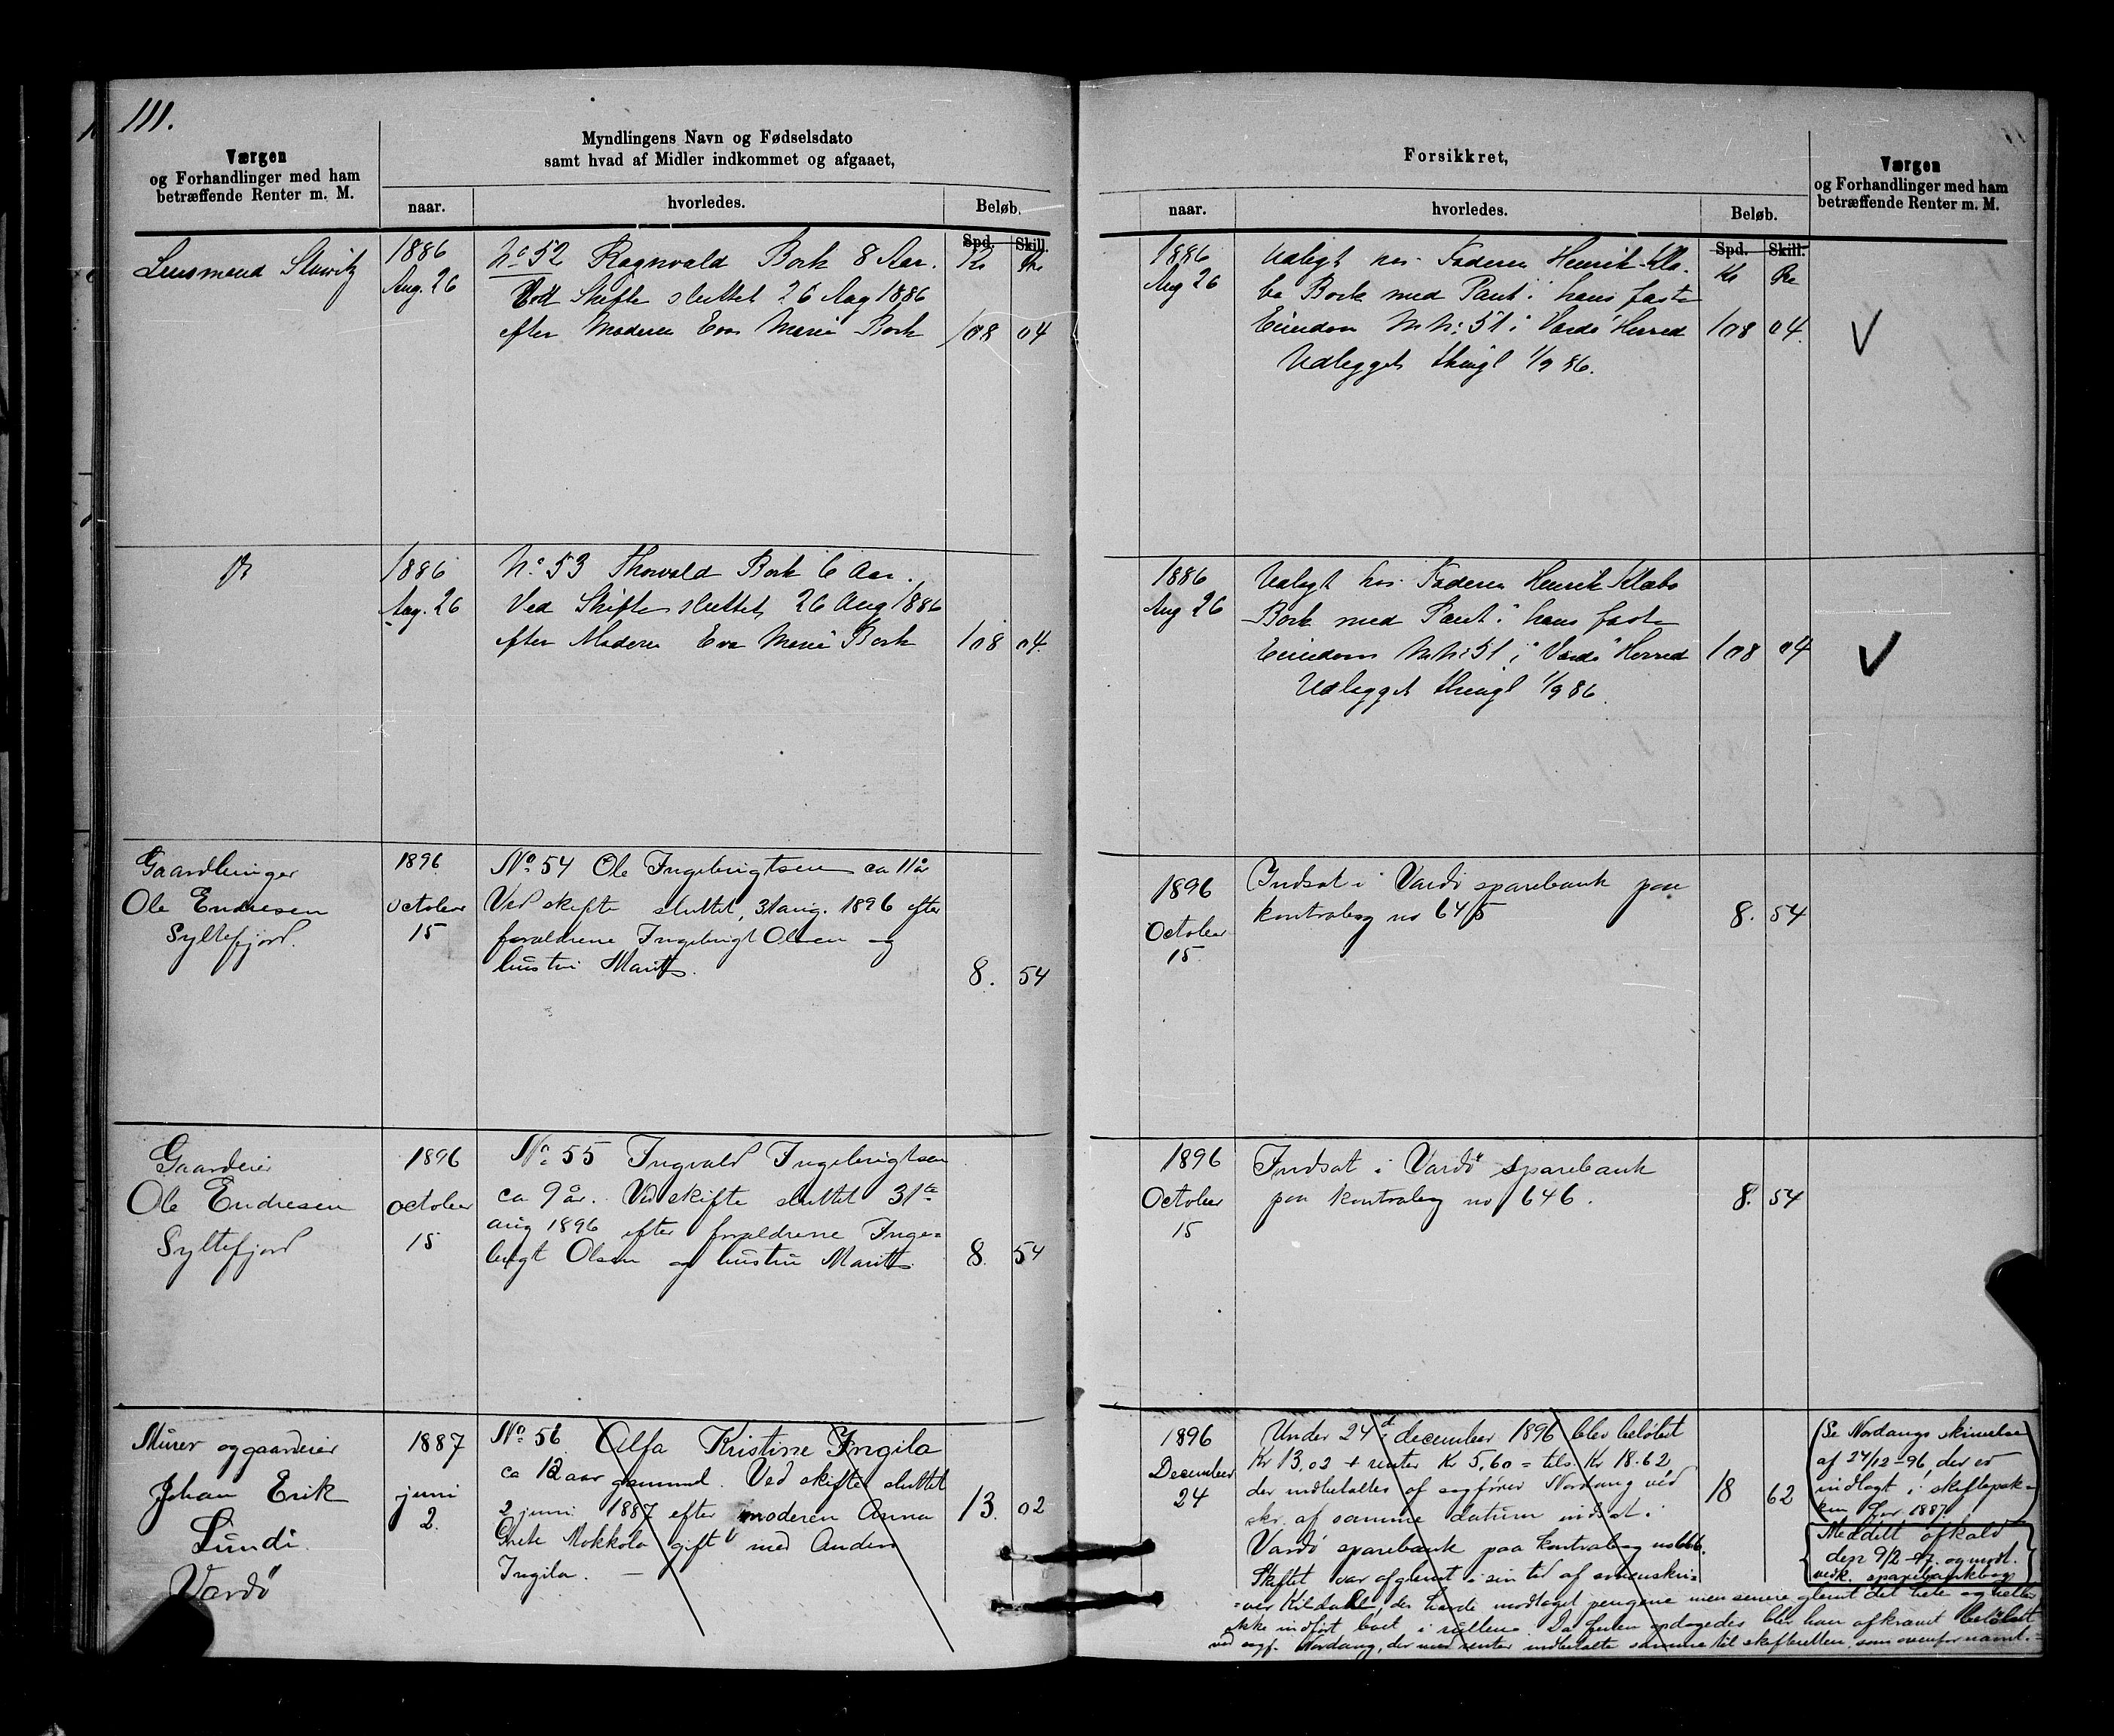 111.
Værgen
og Forhandlinger med ham
betræffende Renter m. M.
Myndlingens Navn og Fødselsdato
samt hvad af Midler indkommet og afgaaet,
naar.
hvorledes.
Beløb.
Spd. Skill.
Kr
1886
Aug. 26
No 52 Ragnvald Bork 8 Aar.
Ved Skifte sluttet 26 Aug 1886
efter Moderen Eva Marie Bork 108 04
1886
Aug. 26
No 53 Thorvald Bork 6 Aar.
Ved Skifte sluttet 26 Aug 1886
efter Moderen Eva Marie Bork 108 04
Gaardbruger
Ole Endresen
Syltefjord.
1896
October
15
No 54 Ole Ingebrigtsen ca 11 år
Ved skifte sluttet, 31 aug. 1896 efter
forældrene Ingebrigt Olsen og
hustru Marit. 8. 54
Gaardeier
Ole Endresen
Syltefjord
1896
October
15
No 55 Ingvald Ingebrigtsen
ca 9 år. Ved skifte sluttet 31te
aug 1896 efter forældrene Inge=
brigt Olsen og hustru Marit 8. 54
Murer og gaardeier
Johan Erik
Lundi.
Vardö
1887
juni
2.
No 56 Alfa Kristine Ingila
ca 12 aar gammel. Ved skifte sluttet
2 juni 1887 efter moderen Anna
Grete Mokkola gift med Anders
Ingila. 13. 02
Forsikkret,
Værgen
og Forhandlinger med ham
betræffende Renter m. M.
naar.
hvorledes.
Beløb.
Spd. Skill.
Kr
1886
Aug 26
Udlagt hos Faderen Henrik Klæ-
bo Bork med Pant i hans faste
Eiendom M. N: 51 i Vardö Herred 108 04.
Udlægget thingl 1/9 86.
1886
Aug 26
Udlagt hos Faderen Henrik Klæbo
Bork med Pant i hans faste
Eiendom M. N: 51 i Vardö Herred 108 04
Udlægget thingl 1/9 86.
1896
October
15.
Indsat i Vardö sparebank paa
kontrabog no 645 8. 54
1896
October
15
Indsat i Vardö sparebank
paa kontrabog no 646. 8. 54
1896
December
24
Under 24d december 1896 blev beløbet
Kr 13,02 + renter Kr 5,60 = tils. Kr 18.62
der indbetaltes af sagfører Nordang ved
skr. af samme datum indsat i
Vardö sparebank paa kontrabog no 666.
Skiftet var afglemt i sin tid af sorenskri=
=ver Kildahl, der havde modtaget pengene men senere glemt det hele og heller
ikke indført boet i rullen. Da feilen opdagedes blev han afkrævet beløbet
ved sagf. Nordang, der med renter indbetalte samme til skifteretten, som ovenfor nævnt.
18 62
(Se Nordangs skrivelse
af 24/12-96, der er
indlagt i skiftepak=
ken for 1887)
Meddelt afkald
den 9/2-97. og modt.
vedk. sparebankbog